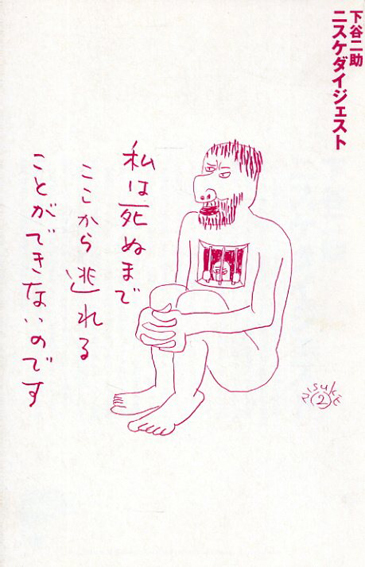 下谷二助
ニスケダイジェスト
私は死ぬまで
ここから逃れる
ことができないのです
nisuke
2